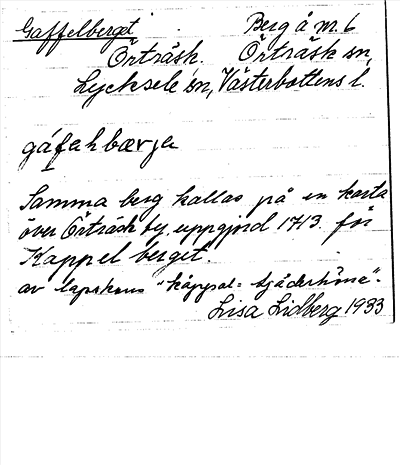 Gaffelberget Berg å m. 6
Örträsk. Örträsk sn,
Lycksele sn, Västerbottens l.
gáfahbærja
Samma berg kallas på en karta
över Örträsk by, uppgjord 1713. för
Kappel berget.
av lapskans "kåppal = tjäderhöna".
Lisa Lidberg 1933